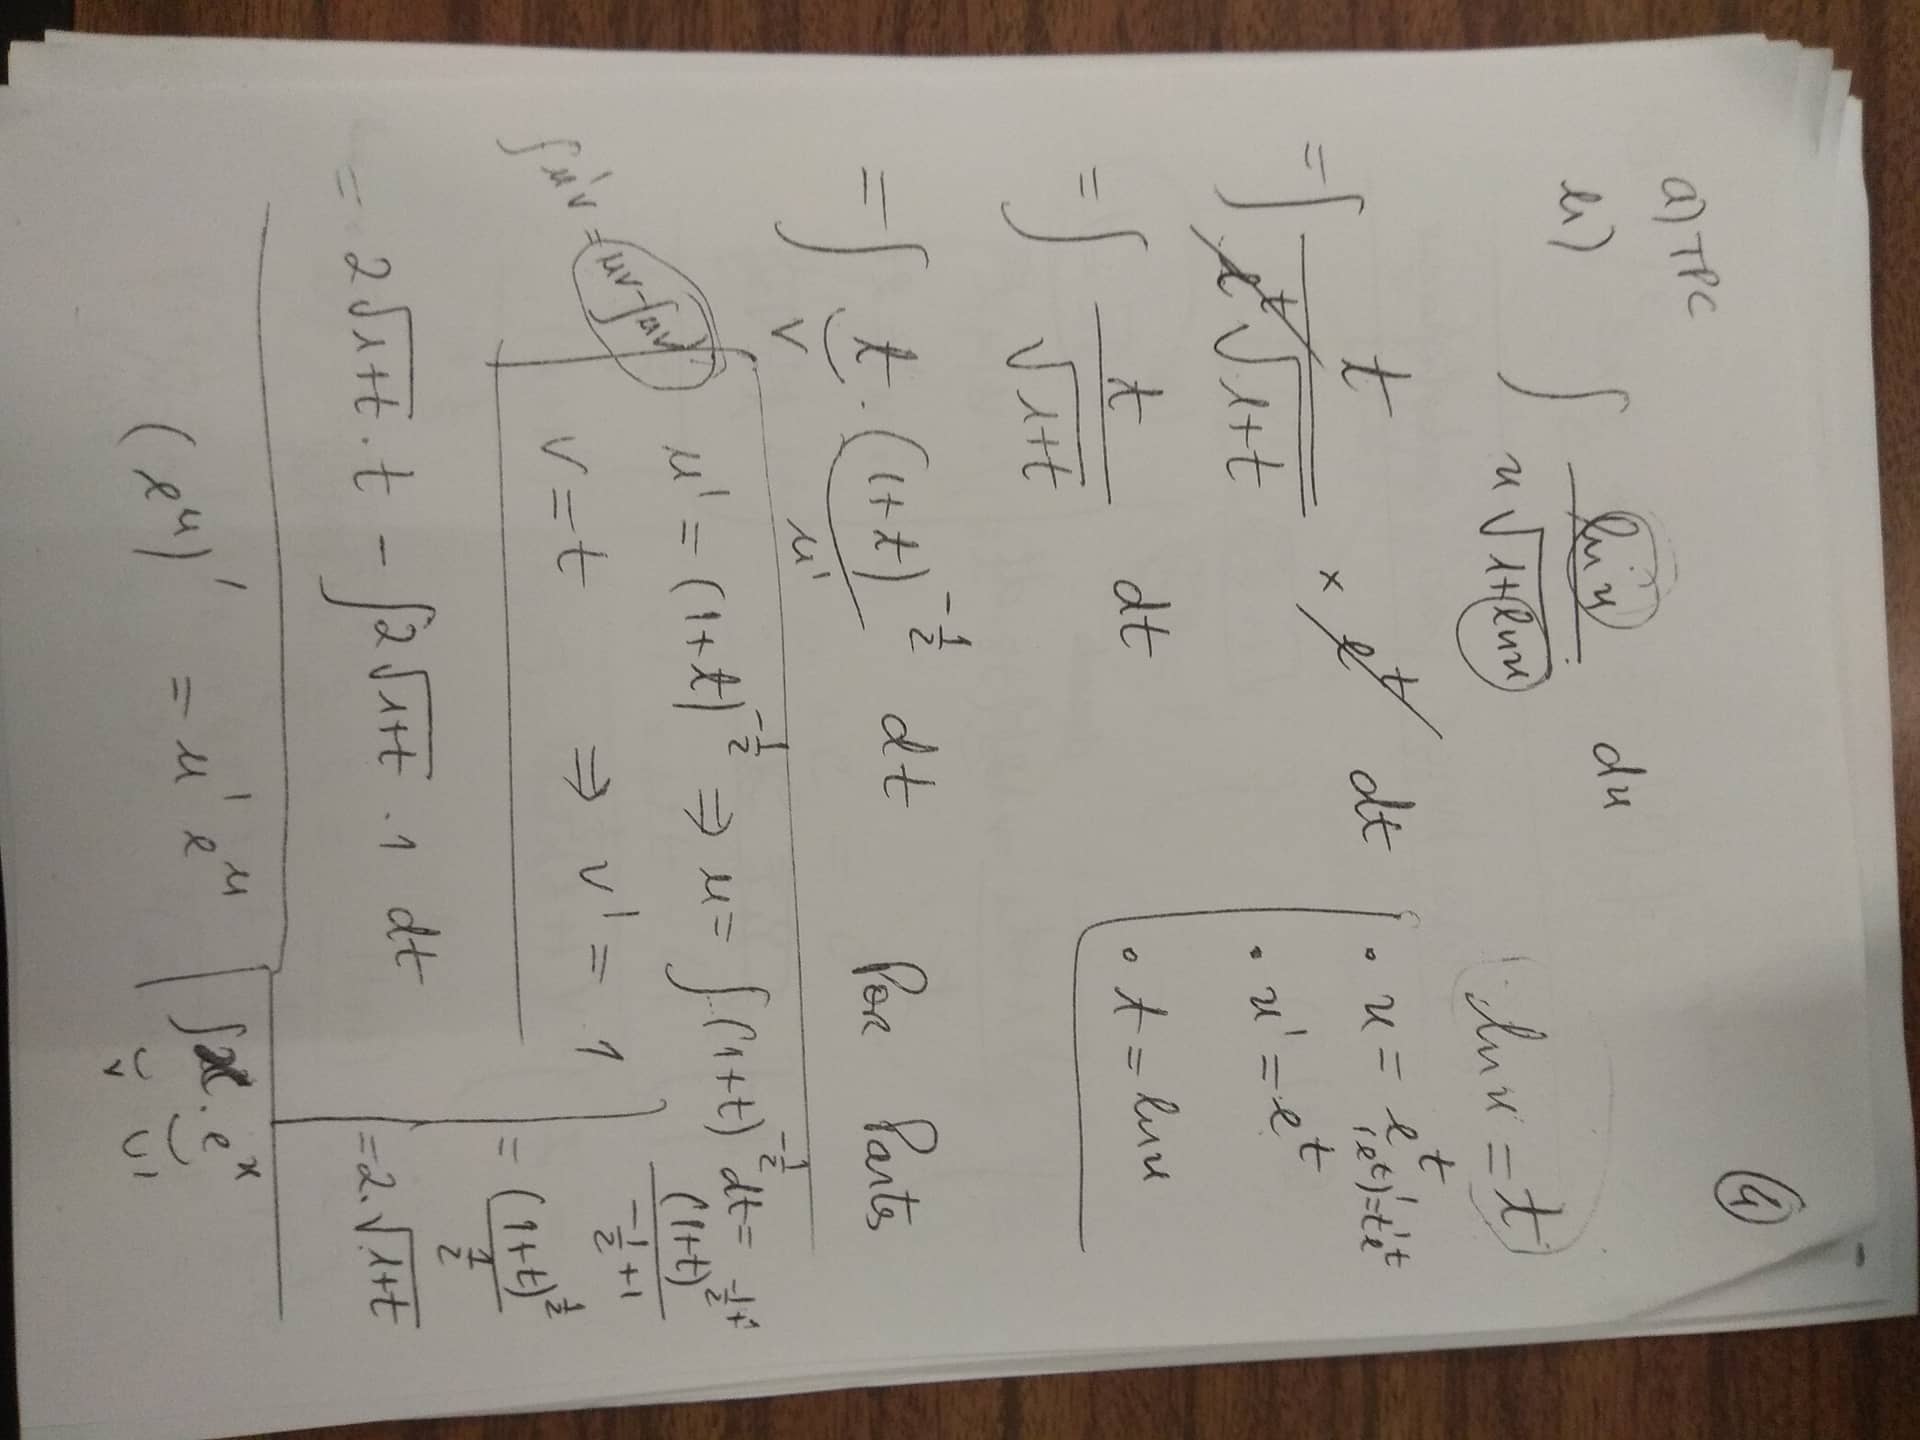 ④
a) TPC
b) ∫ ln x / (x √(1+ln x)) dx
ln x = t
= ∫ t / (e^t √(1+t)) × e^t dt
• x = e^t
(e^t)' = t' e^t
• x' = e^t
• t = ln x
= ∫ t / √(1+t) dt
= ∫ t · (1+t)^(-1/2) dt Por Partes
v u'
u' = (1+t)^(-1/2) ⇒ u = ∫ (1+t)^(-1/2) dt = (1+t)^(-1/2+1) / (-1/2+1)
∫ u'v = uv - ∫ uv'
v = t ⇒ v' = 1
= (1+t)^(1/2) / (1/2)
= 2 · √(1+t)
= 2√(1+t) · t - ∫ 2√(1+t) · 1 dt
(e^u)' = u' e^u
∫ x · e^x
v u'